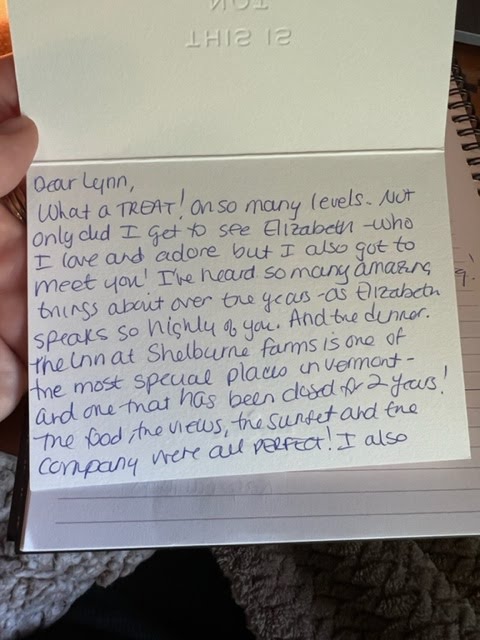 NOT
THIS IS
Dear Lynn,
What a TREAT! On so many levels. Not
only did I get to see Elizabeth - who
I love and adore but I also got to
meet you! I've heard so many amazing
things about over the years - as Elizabeth
speaks so highly of you. And the dinner.
The Inn at Shelburne Farms is one of
the most special places in Vermont -
and one that has been closed for 2 years!
The food, the views, the sunset and the
company were all PERFECT! I also